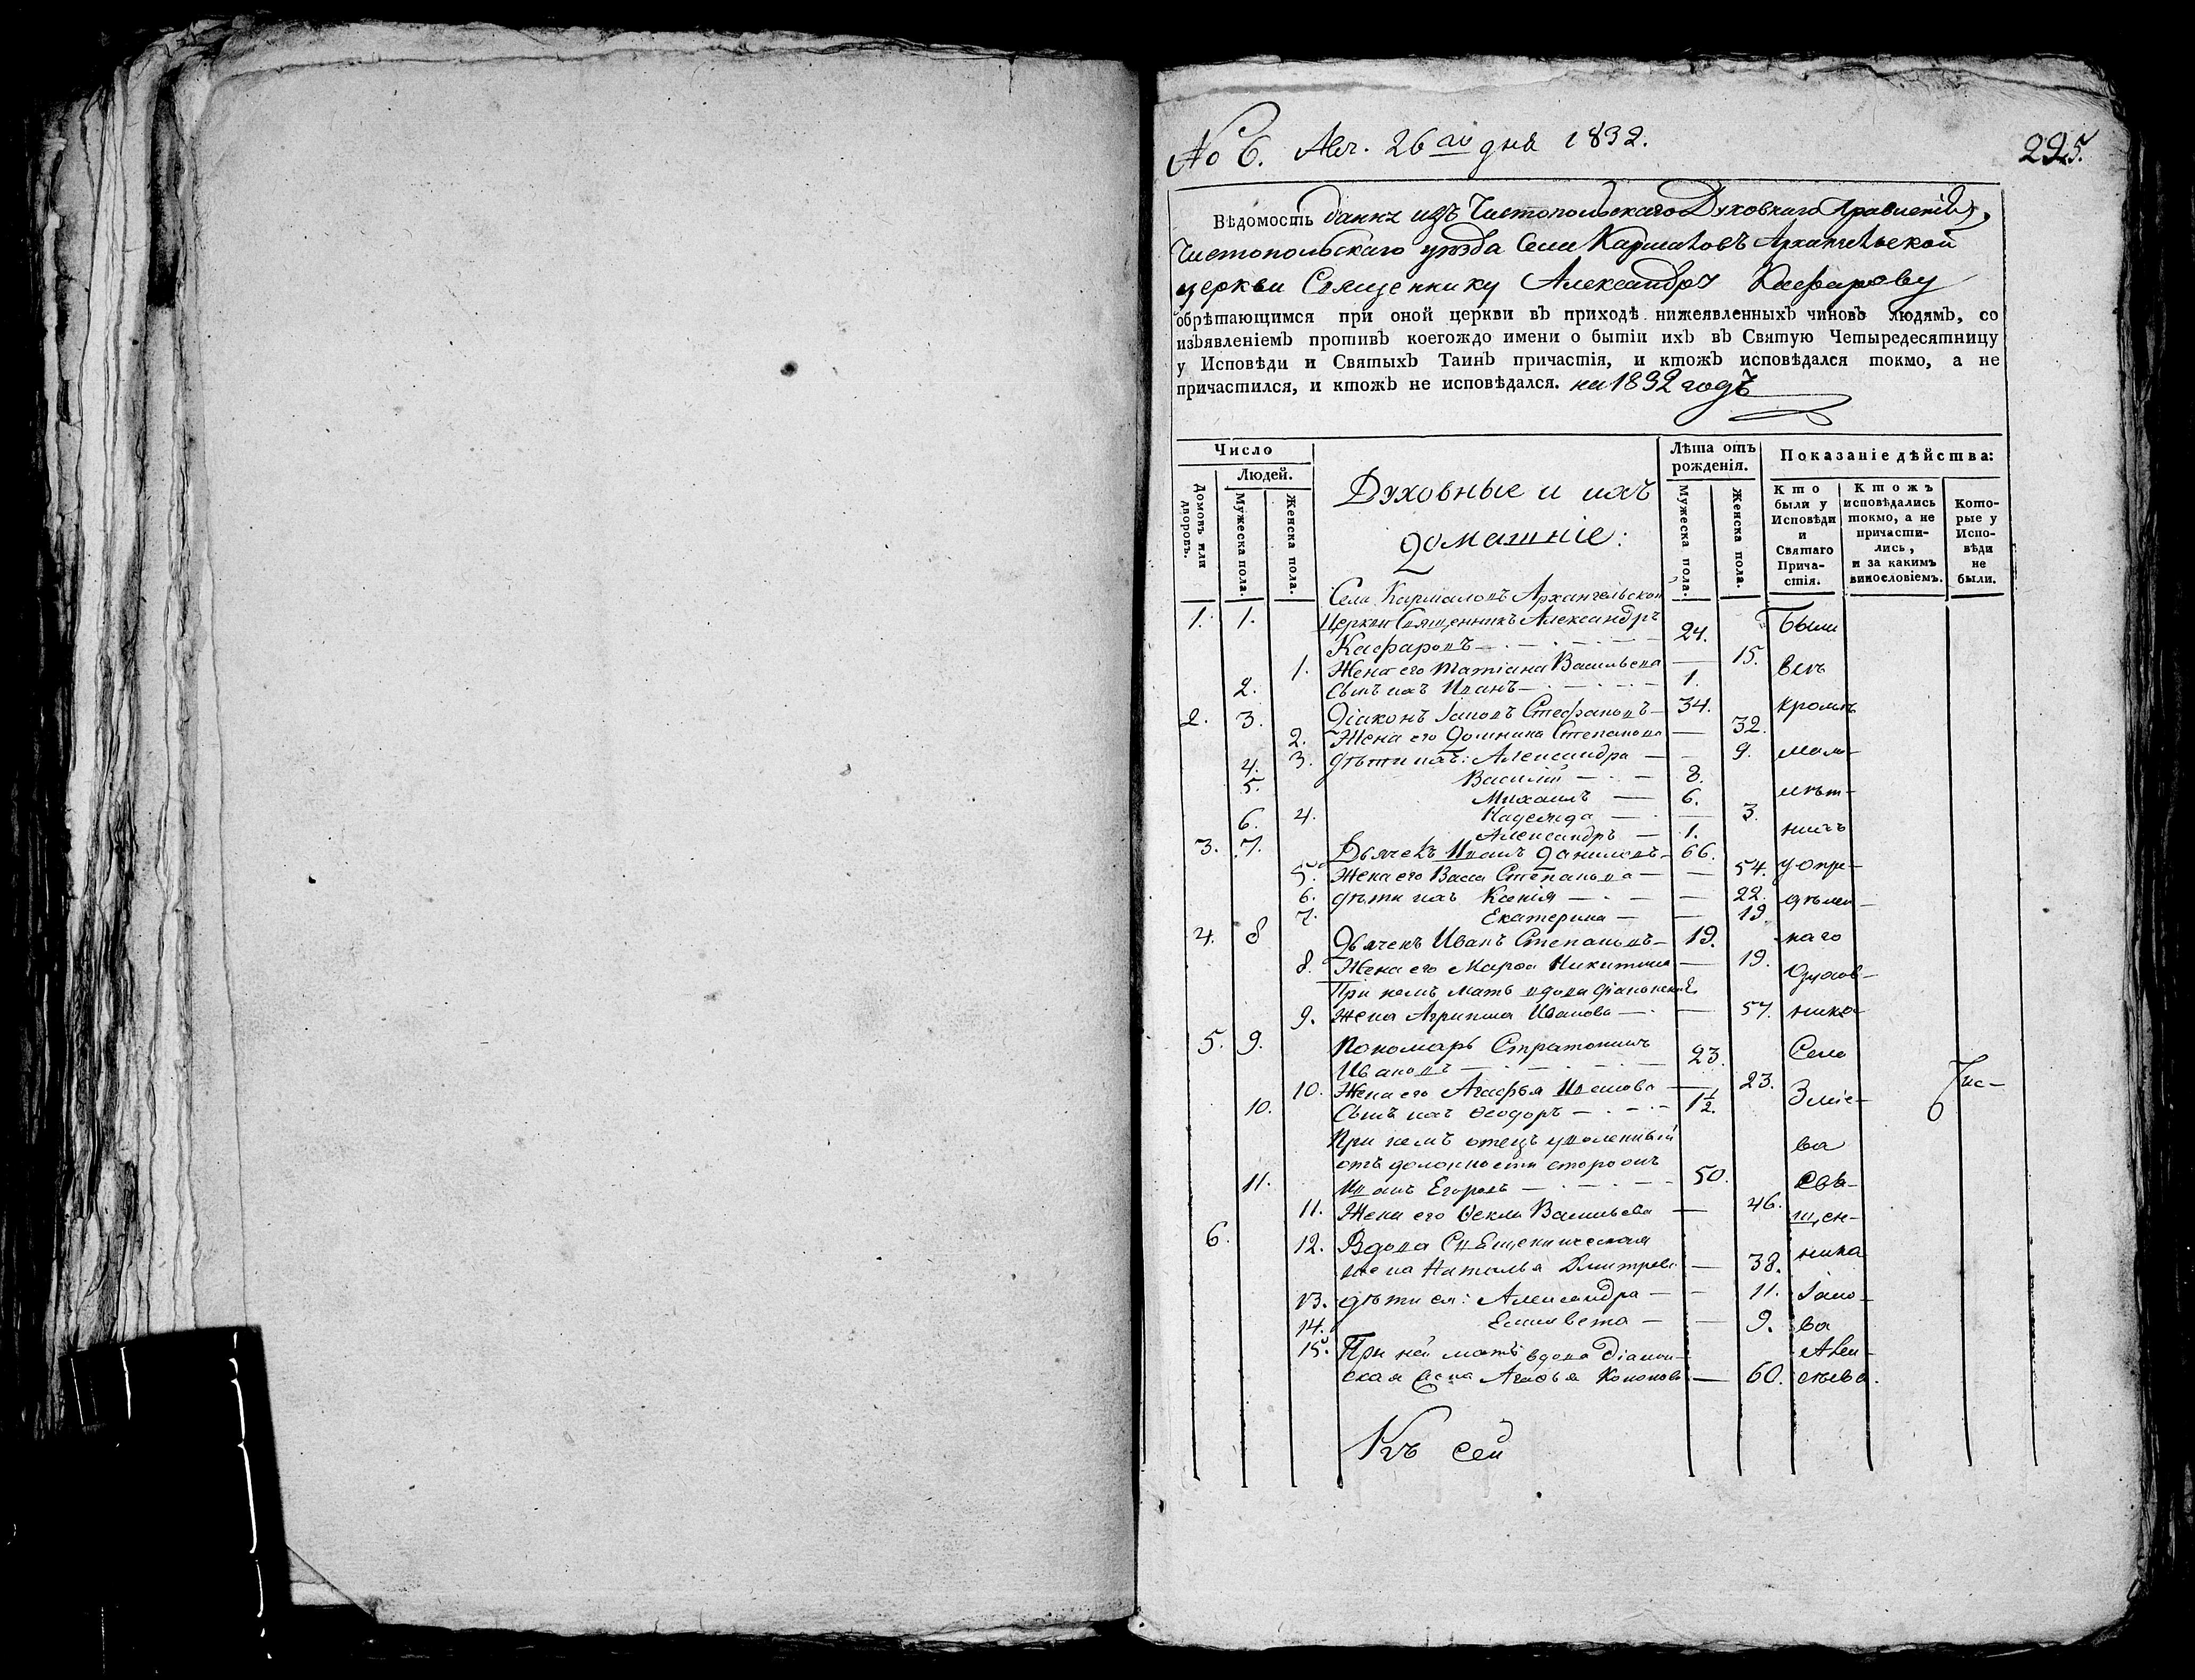 No 6. Авг. 26 го дня 1832.
225.
Вѣдомость данна изъ Чистопольскаго Духовнаго Правленія,
Чистопольскаго уѣзда Села Кармаловъ Архангельской
церкви Священнику Александру Касфарову
обрѣтающимся при оной церкви въ приходѣ нижеявленныхъ чиновъ людямъ, со
изъявленіемъ противъ коегождо имени о бытіи ихъ въ Святую Четыредесятницу
у Исповѣди и Святыхъ Таинъ причастія, и ктожъ исповѣдался токмо, а не
причастился, и ктожъ не исповѣдался. на 1832 годъ
Число
Людей.
Домовъ или дворовъ.
Мужеска пола.
Женска пола.
Духовные и ихъ
домашніе:
Лѣта отъ рожденія.
Мужеска пола.
Женска пола.
Показаніе дѣйства:
Кто были у Исповѣди и Святаго Причастія.
Ктожъ исповѣдались токмо, а не причастились, и за какимъ винословіемъ.
Которые у Исповѣди не были.
Села Кармаловъ Архангельской
1. 1. Церкви Священникъ Александръ Были
Касфаровъ 24.
1. Жена его Татіана Васильева — 15. всѣ
2. Сынъ ихъ Иванъ 1.
2. 3. Діаконъ Іаковъ Стефановъ 34. кромѣ
2. Жена его Домника Степанова — 32.
3. дѣти ихъ: Александра — 9. мало-
4. Василій 8.
5. Михаилъ 6. лѣт-
4. Надежда — 3.
6. Александръ 1. нихъ
3. 7. Дьячекъ Иванъ Даниловъ 66.
5. Жена его Васса Степанова — 54. у опре-
6. дѣти ихъ Ксенія — 22. дѣлен-
7. Екатерина — 19.
4. 8 Дьячекъ Иванъ Степановъ 19. наго
8. Жена его Марѳа Никитина — 19. духов-
При немъ мать вдова діаконская
9. жена Агрипина Иванова — 57. ника
5. 9. Пономарь Стратоникъ Села
Ивановъ 23.
10. Жена его Агафья Иванова — 23. Зміе-
10. Сынъ ихъ Ѳеодоръ 1½.
При немъ отецъ уволенный ва
отъ должности сторожъ
11. Иванъ Егоровъ 50. Свя-
11. Жена его Ѳекла Васильева — 46. щен-
6. 12. Вдова Священническая ника
жена Наталья Дмитрева — 38.
13. дѣти ея: Александра — 11. Іако-
14. Елисавета — 9. ва
15. При ней мать вдова діакон- Алек-
ская жена Агафья Кононова — 60. сѣева.
Къ сей